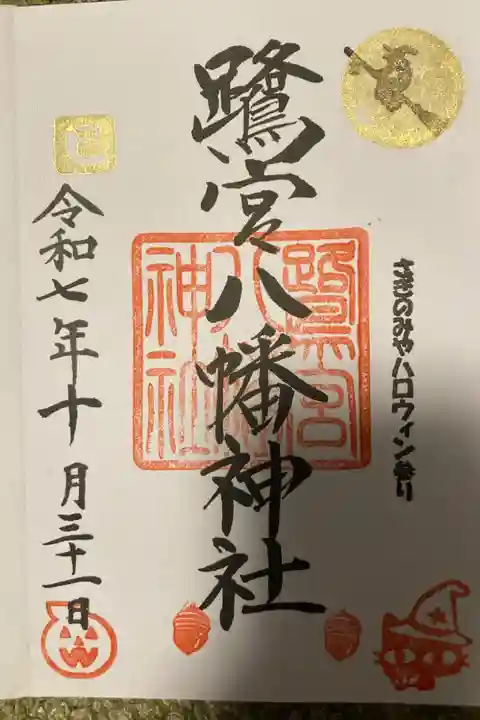 さぎのみやハロウィン祭り
鷺宮八幡神社
鷺宮
八幡
神社
令和七年十月三十一日